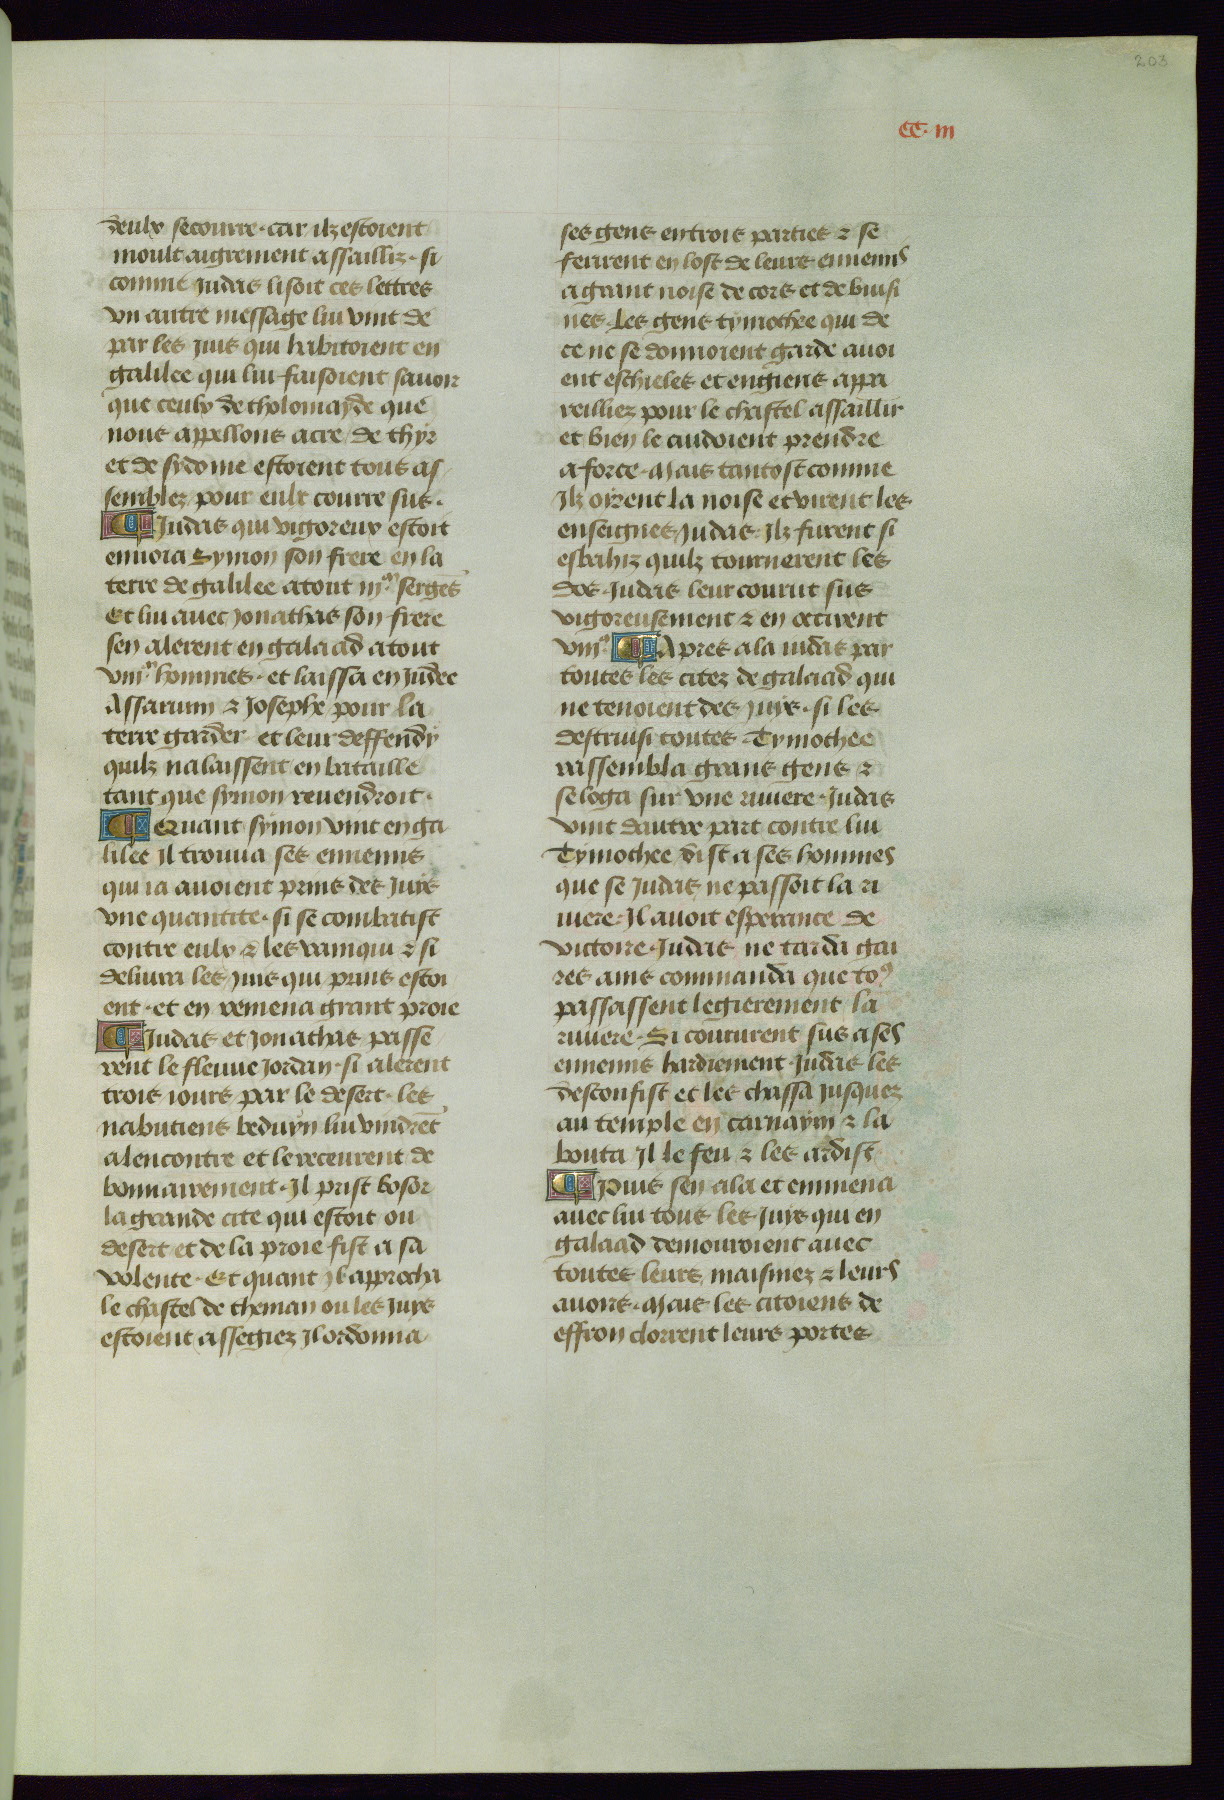 203
CC. iii
deulx secourre. car ilz estoient
moult aigrement assailliz. si
comme Judas lisoit ces lettres
vn autre message lui vint de
par les juis qui habitoient en
galilee qui lui faisoient sauoir
que ceulx de tholomayde que
nous appellons acre / de thyr
et de sydome estoient tous as
semblez pour eulx courre sus.
Judas qui vigoreux estoit
enuoia Symon son frere en la
terre de galilee atout iijᵐ sergẽs
Et lui auec Jonathas son frere
sen alerent en galaad atout
viijᵐ hommes. et laissa en Judee
Assarium & Josephe pour la
terre garder et leur deffendy
quilz nalaissent en bataille
tant que symon reuendroit.
Quant symon vint en ga
lilee Il trouua ses ennemis
qui ia auoient prins des Juys
vne quantite. si se combatist
contre eulx & les vainqui & si
deliura les juis qui prins estoi
ent. et en remena grant proie
Judas et Jonathas passe
rent le fleuue Jordan. si alerent
trois iours par le desert. les
nabutiens beduyn lui vindrẽt
alencontre et le receurent de
bonnairement. Il prist bosor
la grande cite qui estoit ou
desert et de la proie fist a sa
volente. Et quant Il approcha
le chastel de theman ou les Juys
estoient assegiez Il ordonna
ses gens en trois parties & se
ferirent en lost de leurs ennemis
a grant noise de cors et de buisi
nes. Les gens tymothee qui de
ce ne se donnoient garde auoi
ent eschieles et engiens appa
reilliez pour le chastel assaillir
et bien le cuidoient prendre
a force. Mais tantost comme
Ilz oyrent la noise et virent les
enseignes Judas. Ilz furent si
esbahiz quilz tournerent les
dos. Judas leur courut sus
vigoreusement & en occirent
viijᵐ Apres ala iudas par
toutes les citez de galaad qui
ne tenoient des Juys. si les
destruisi toutes. Tymothee
rassembla grans gens &
se loga sur vne riuiere. Judas
vint dautre part contre lui
Tymothee dist a ses hommes
que se Judas ne passoit la ri
uiere. Il auoit esperance de
victoire. Judas ne tarda gai
res ains commanda que toꝰ
passassent legierement la
riuiere. Si coururent sus a ses
ennemis hardiement. Judas les
desconfist et les chassa jusquez
au temple en carnaym & la
bouta Il le feu & les ardist
Puis sen ala et emmena
auec lui tous les Juys qui en
galaad demouroient auec
toutes leurs maisniez & leurs
auoirs. Mais les citoiens de
effron clorrent leurs portes